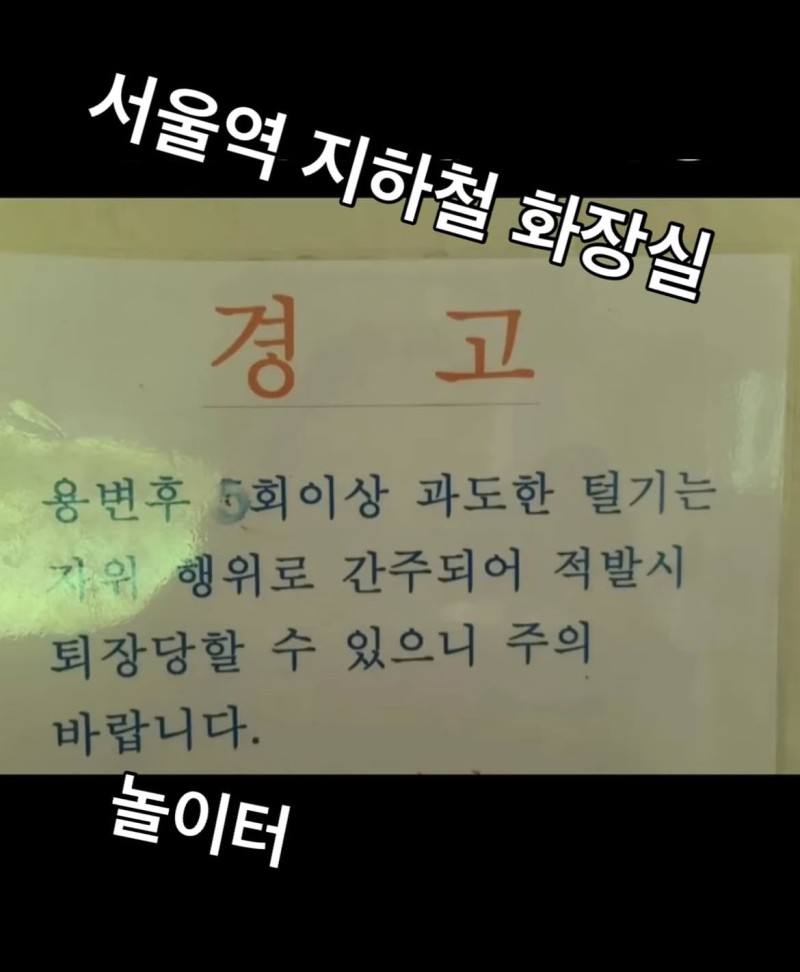 서울역 지하철 화장실
경 고
용변후 5회이상 과도한 털기는
자위 행위로 간주되어 적발시
퇴장당할 수 있으니 주의
바랍니다.
놀이터